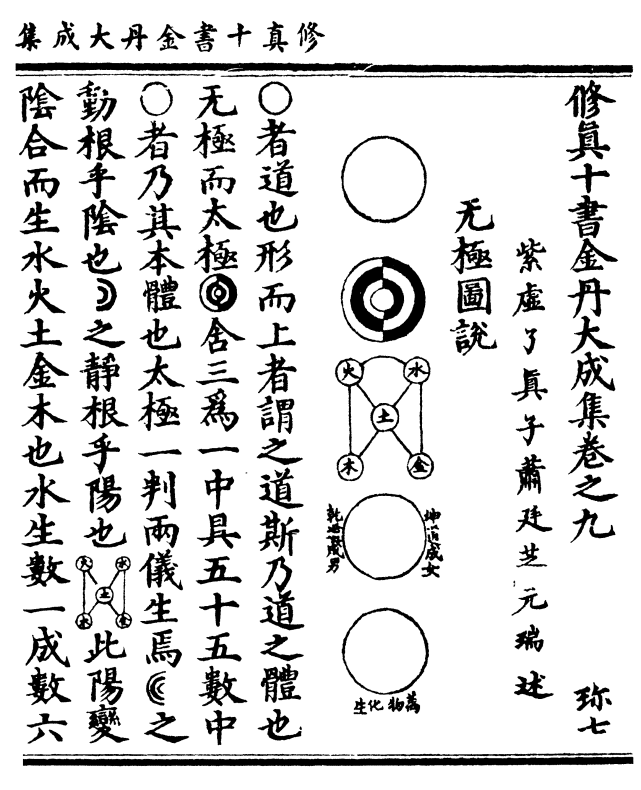 修眞十書金丹大成集
修眞十書金丹大成集卷之九 珎七
紫虛了眞子蕭廷芝元瑞述
无極圖說
水
火
土
金
木
坤道成女
乾道成男
萬物化生
○者道也形而上者謂之道斯乃道之體也
无極而太極舍三爲一中具五十五數中
○者乃其本體也太極一判兩儀生焉之
動根乎陰也之靜根乎陽也水火土金木此陽變
陰合而生水火土金木也水生數一成數六